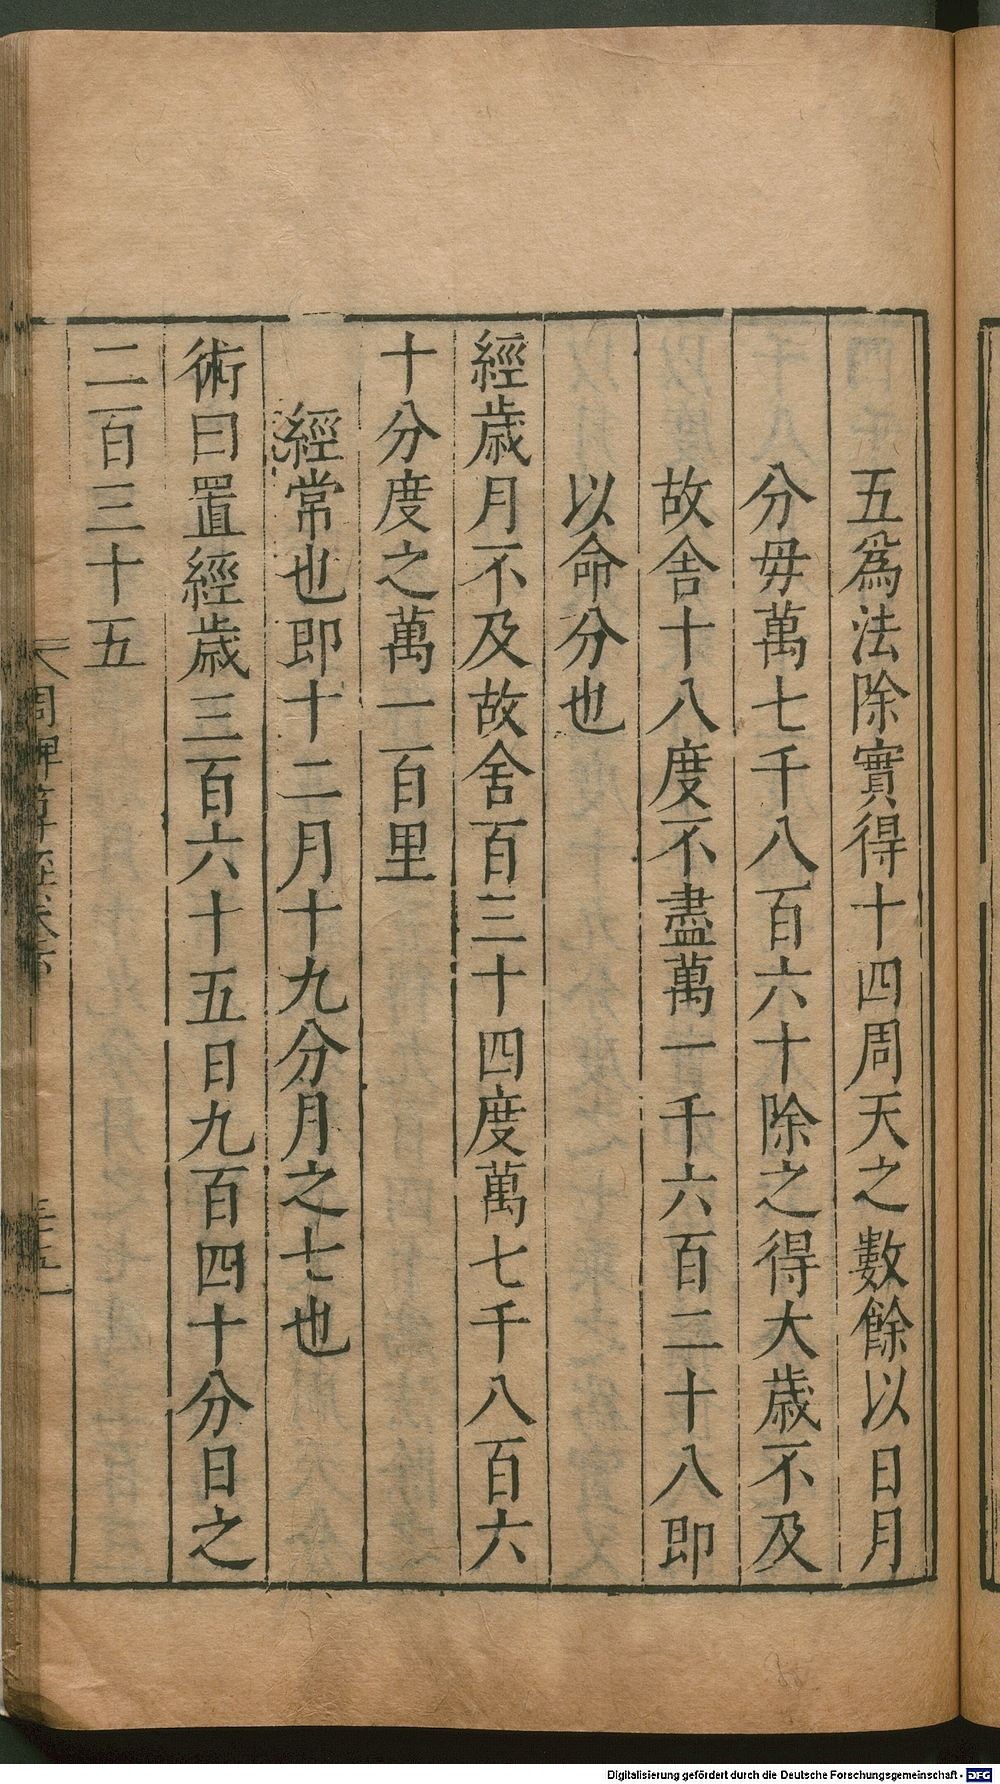 五爲法除實得十四周天之數餘以日月
分毋萬七千八百六十除之得大歲不及
故舍十八度不盡萬一千六百二十八即
以命分也
經歲月不及故舍百三十四度萬七千八百六
十分度之萬一百里
經常也即十二月十九分月之七也
術曰置經歲三百六十五日九百四十分日之
二百三十五
周髀算經卷下
Digitalisierung gefördert durch die Deutsche Forschungsgemeinschaft - DFG